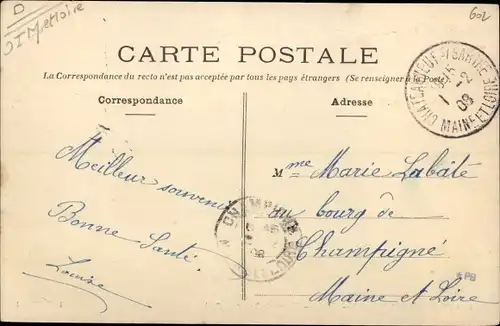 D
M et Loire
602
CARTE POSTALE
La Correspondance du recto n'est pas acceptée par tous les pays étrangers (Se renseigner à la Poste)
Correspondance
Adresse
CHATEAUNEUF-S-SARTHE
1 -2
09
MAINE-ET-LOIRE
Meilleur souvenir
Bonne Santé
Louise
Mme Marie Labâté
au bourg de
Champigné
Maine et Loire
*PB